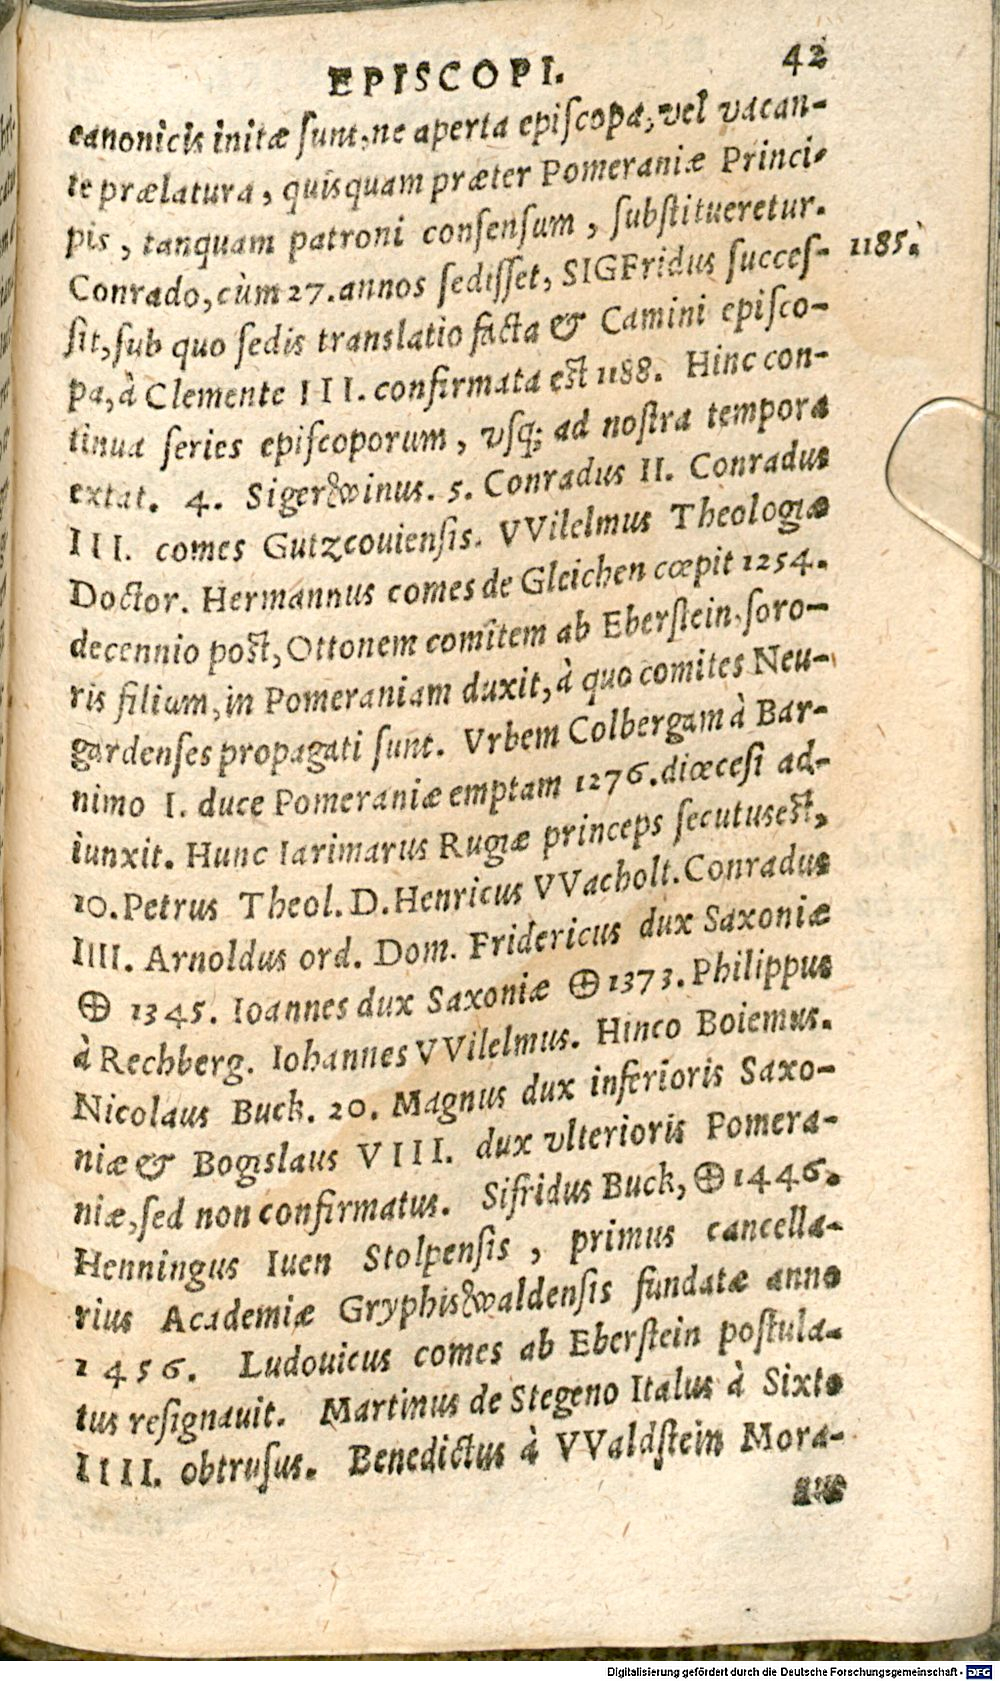 EPISCOPI. 42
canonicis initæ sunt, ne aperta episcopa, vel vacan-
te prælatura, quisquam præter Pomeraniæ Princi-
pis, tanquam patroni consensum, substitueretur.
Conrado, cùm 27. annos sedisset, SIGFridus succes- 1185.
sit, sub quo sedis translatio facta & Camini episco-
pa, à Clemente III. confirmata est 1188. Hinc con-
tinua series episcoporum, vsq; ad nostra tempora
extat. 4. Sigerwinus. 5. Conradus II. Conradus
III. comes Gutzcouiensis. VVilelmus Theologiæ
Doctor. Hermannus comes de Gleichen cœpit 1254.
decennio post, Ottonem comitem ab Eberstein, soro-
ris filium, in Pomeraniam duxit, à quo comites Neu-
gardenses propagati sunt. Vrbem Colbergam à Bar-
nimo I. duce Pomeraniæ emptam 1276. diœcesi ad-
iunxit. Hunc Iarimarus Rugiæ princeps secutus est,
10. Petrus Theol. D. Henricus VVacholt. Conradus
IIII. Arnoldus ord. Dom. Fridericus dux Saxoniæ
⊕ 1345. Ioannes dux Saxoniæ ⊕ 1373. Philippus
à Rechberg. Iohannes VVilelmus. Hinco Boiemus.
Nicolaus Buck. 20. Magnus dux inferioris Saxo-
niæ & Bogislaus VIII. dux vlterioris Pomera-
niæ, sed non confirmatus. Sifridus Buck, ⊕ 1446.
Henningus Iuen Stolpensis, primus cancella-
rius Academiæ Gryphiswaldensis fundatæ anno
1456. Ludouicus comes ab Eberstein postula-
tus resignauit. Martinus de Stegeno Italus à Sixto
IIII. obtrusus. Benedictus à VValdstein Mora-
uus
Digitalisierung gefördert durch die Deutsche Forschungsgemeinschaft - DFG